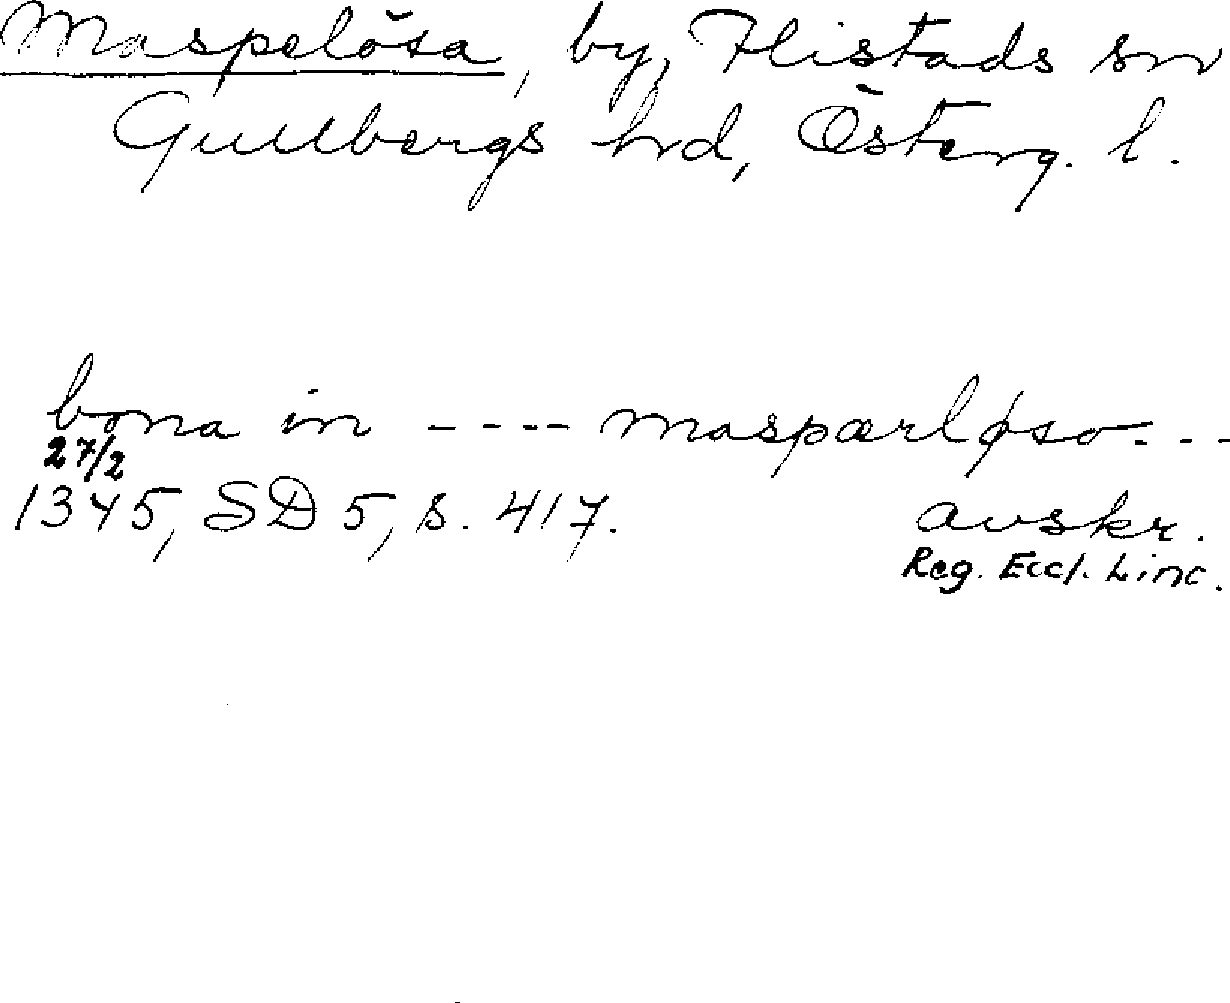 Maspelösa, by, Flistads sn
Gullbergs hrd, Österg. l.
bona in ---- maspærløso. - -
27/2
1345, SD 5, s. 417. avskr.
Reg. Eccl. Linc.